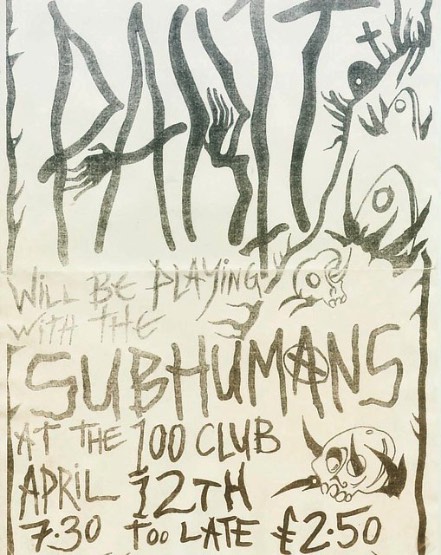 PART
WILL BE PLAYING
WITH THE
SUBHUMANS
AT THE 100 CLUB
APRIL 12TH
7.30 TOO LATE £2.50